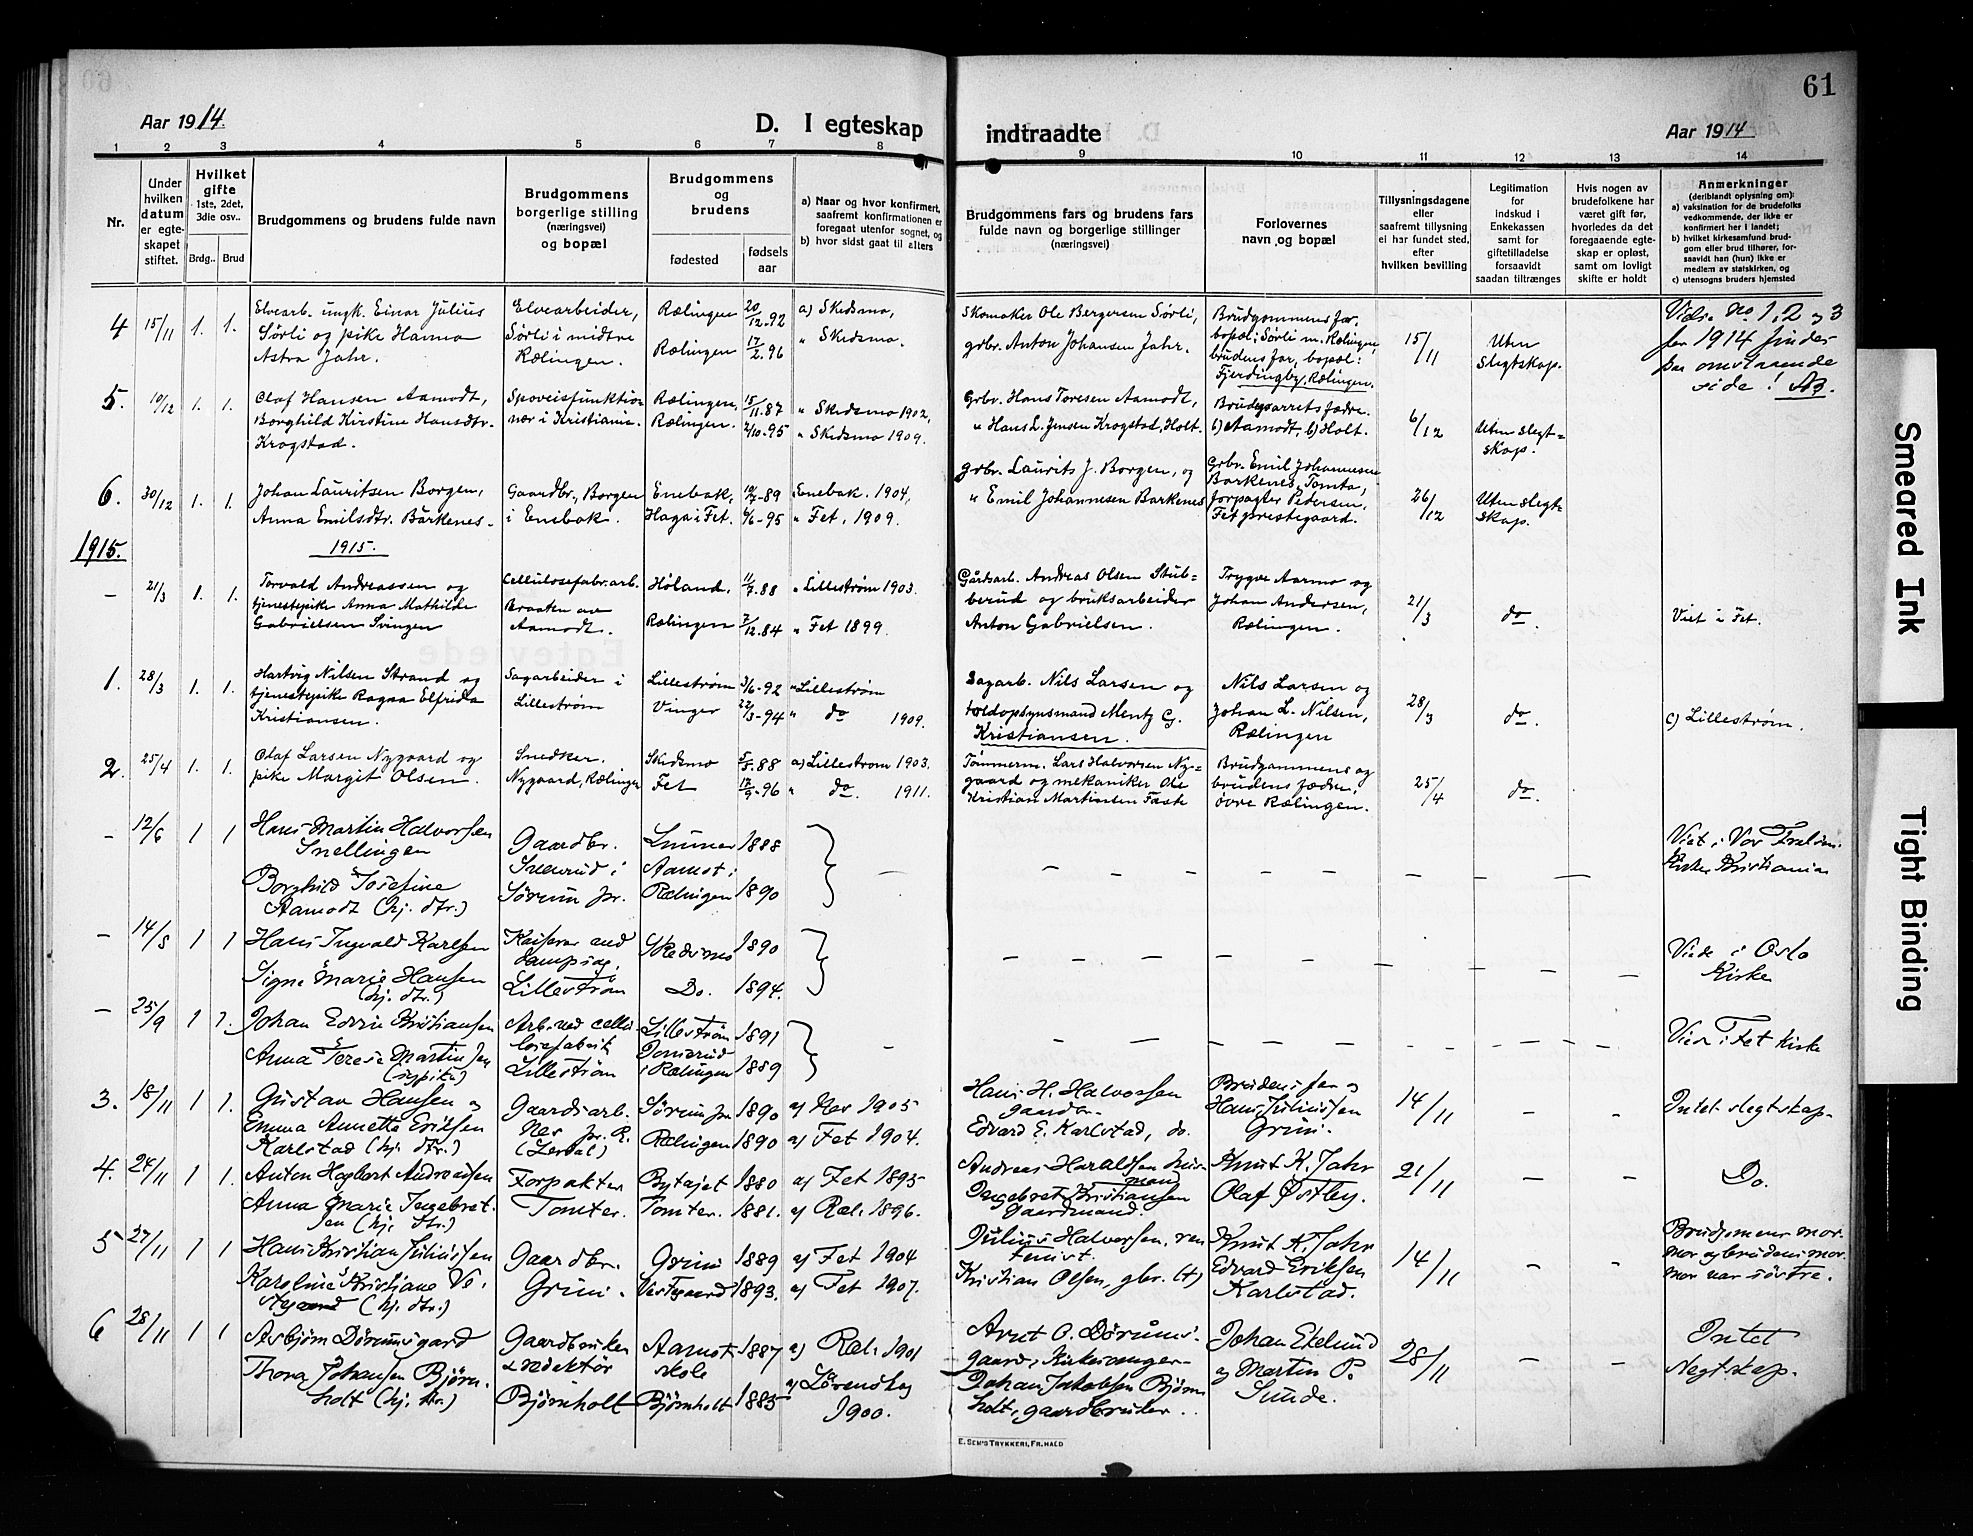 61
Aar 1914.
D. I egteskap
indtraadte
Aar 1914
1 2 3 4 5 6 7 8 9 10 11 12 13 14
Nr.
Under hvilken datum er egteskapet stiftet.
Hvilket gifte
1ste, 2det, 3die osv..
Brdg.. Brud
Brudgommens og brudens fulde navn
Brudgommens borgerlige stilling (næringsvei) og bopæl
Brudgommens og brudens
fødested
fødselsaar
a) Naar og hvor konfirmert, saafremt konfirmationen er foregaat utenfor sognet, og
b) hvor sidst gaat til alters
Brudgommens fars og brudens fars fulde navn og borgerlige stillinger (næringsvei)
Forlovernes navn og bopæl
Tillysningsdagene eller saafremt tillysning ei har fundet sted, efter hvilken bevilling
Legitimation for indskud i Enkekassen samt for giftetilladelse forsaavidt saadan tiltrænges
Hvis nogen av brudefolkene har været gift før, hvorledes da det foregaaende egteskap er opløst, samt om lovligt skifte er holdt
Anmerkninger
(deriblandt oplysning om):
a) vaksination for de brudefolks vedkommende, der ikke er konfirmert her i landet;
b) hvilket kirkesamfund brudgom eller brud tilhører, forsaavidt han (hun) ikke er medlem av statskirken, og
c) utensogns bruders hjemsted
4 15/11 1. 1. Elvearb. ungk. Einar Julius Sørli og pike Hanna Astra Jahr.
Elvearbeider, Sørli i midtre Rælingen.
Rælingen 20/12-92 a) Skedsmo,
Rælingen 17/2-96 " Skedsmo.
Skomaker Ole Bergersen Sørli,
grbr. Anton Johansen Jahr.
Brudgommens far, bopæl: Sørli m. Rælingen, brudens far, bopæl: Fjerdingby, Rælingen.
15/11 Uten slegtskap.
Vids. No 1, 2 og 3 for 1914 findes paa omstaaende side!
5. 10/12 1. 1. Olaf Hansen Aamodt, Borghild Kirstine Hansdtr. Krogstad.
Sporveisfunktionær i Kristiania.
Rælingen, 15/11-87 " Skedsmo 1902,
Rælingen. 2/10-95 " Skedsmo 1909.
Grbr. Hans Toresen Aamodt,
" Hans L. Jensen Krogstad, Holt.
Brudeparrets fædre. b) Aamodt, b) Holt.
6/12 Uten slegtskap.
6. 30/12 1. 1. Johan Lauritsen Borgen, Anna Emilsdtr. Barkenes.
Gaardbr., Borgen i Enebak.
Enebak, 10/7-89 Enebak. 1904,
Haga i Fet. 4/6-95 " Fet, 1909.
grbr. Laurits J. Borgen, og
" Emil Johannesen Barkenes
Grbr. Emil Johannesen Barkenes, Tomta, forpagter Pedersen, Fet prestegaard.
26/12 Uten slegtskap.
1915. 1915.
- 21/3 1. 1. Torvald Andreassen og tjenestepike Anna Mathilde Gabrielsen Svingen
Cellulosefabr.arb. Braaten av Aamodt.
Høland, 11/7-88 " Lillestrøm 1903.
Rælingen 7/12-84 " Fet 1899.
Gårdsarb. Andreas Olsen Stubberud og bruksarbeider Anton Gabrielsen.
Trygve Aarmo og Johan Andersen, Rælingen.
21/3 do. Viet i Fet.
1. 28/3 1. 1. Hartvig Nilsen Strand og tjenestepike Ragna Elfrida Kristiansen.
Sagarbeider i Lillestrøm
Lillestrøm 3/6-92 " Lillestrøm
Vinger 22/3-94 " do 1909.
Sagarb. Nils Larsen og toldopsynsmand Mentz G. Kristiansen.
Nils Larsen og Johan L. Nilsen, Rælingen
28/3 do. c) Lillestrøm.
2. 25/4 1. 1. Olaf Larsen Nygaard og pike Margit Olsen.
Snedker. Nygaard, Rælingen
Skedsmo 5/5-88 a) Lillestrøm 1903.
Fet 17/9-96 " do. 1911.
Tømmerm. Lars Halvorsen Nygaard og mekaniker Ole Kristian Martinsen Faste
Brudgommens og brudens fædre, øvre Rælingen.
25/4 do.
- 12/6 1 1 Hans Martin Halvorsen Snellingen
Borghild Josefine Aamodt (hj. dtr.)
Gaardbr. Snerud i Sørum pr.
1888
Aamot i Rælingen 1890
Viet i Vor Frelsers Kirke Kristiania
- 14/8 1 1 Hans Ingvald Karlsen
Signe Marie Hansen (hj. dtr.)
dampsag, Lillestrøm
Skedsmo 1890
Do. 1894.
Viede i Oslo Kirke
- 25/9 1 1. Johan Edvin Kristiansen
Anna Terese Martinsen (sypike)
Arb. ved cellulosefabrik Lillestrøm
Lillestrøm 1891
i Rælingen 1889
Viede i Fet Kirke
3. 18/11 1 1. Gustav Hansen og
Emma Annette Eriksen Karlstad (hj. dtr.)
Gaardsarb. Nes pr. R.
Sørum pr 1890 a) Nes 1905
Rælingen 1890 a) Fet 1904.
Hans H. Halvorsen gaardbr.
Edvard E. Karlstad, do.
Brudens far og Hans Juliussen Grini.
14/11 - - Intet slegtskap
4. 24/11 1 1. Anton Hagbart Andreassen
Anna Marie Ingebretsen (hj. dtr.)
Forpakter Tomter.
Bytajet 1880 a) Fet 1895
Tomter. 1881. a) Ræl. 1896.
Andreas Haraldsen husmand
Ingebret Kristiansen gaardmand.
Knut K. Jahr
Olaf Østby.
21/11 - - Do.
5 27/11 1 1 Hans Kristian Juliussen
Karoline Kristiane Vestgaard (hj. dtr.)
Gaardbr. Grini.
Grini 1889 a) Fet 1904
Vestgaard 1893. a) Fet 1907.
Julius Halvorsen,
Kristian Olsen, gbr. (+)
Knut K. Jahr
Edvard Eriksen Karlstad.
14/11 - - Brudgomens mormor og brudens mormor var søstre.
6 28/11 1 1 Asbjørn Dørumsgaard
Thora Johansen Bjørnholt (hj. dtr.)
Gaardbruker & redaktør Bjørnholt
Aamot skole 1887 a) Ræl. 1901
Bjørnholt 1885 a) Lørenskog 1900.
Arnt O. Dørumsgaard, kirkesanger
Johan Jakobsen Bjørnholt, gaardbruker.
Johan Ekelund og Martin P. Sunde.
28/11 - - Intet slegtskap.
E. SEM'S TRYKKERI, FR.HALD
Smeared Ink
Tight Binding